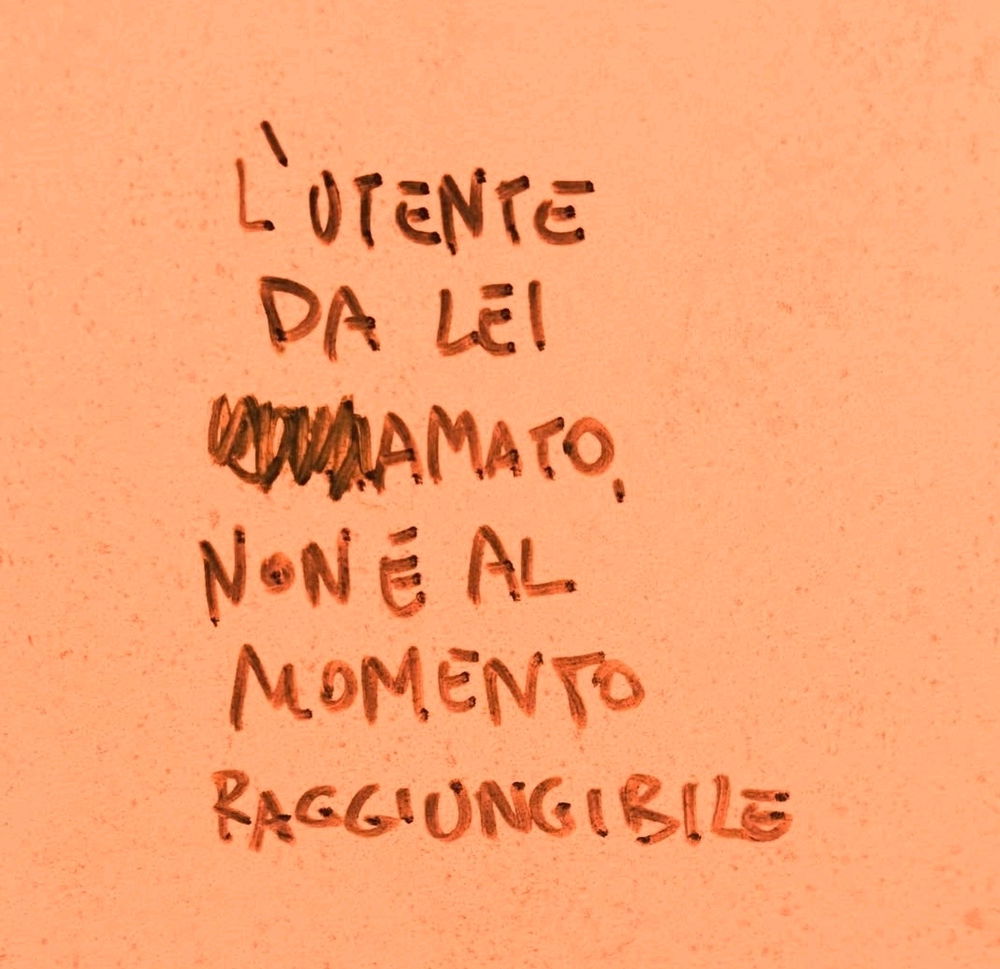 L'UTENTE
DA LEI
AMATO,
NON É AL
MOMENTO
RAGGIUNGIBILE